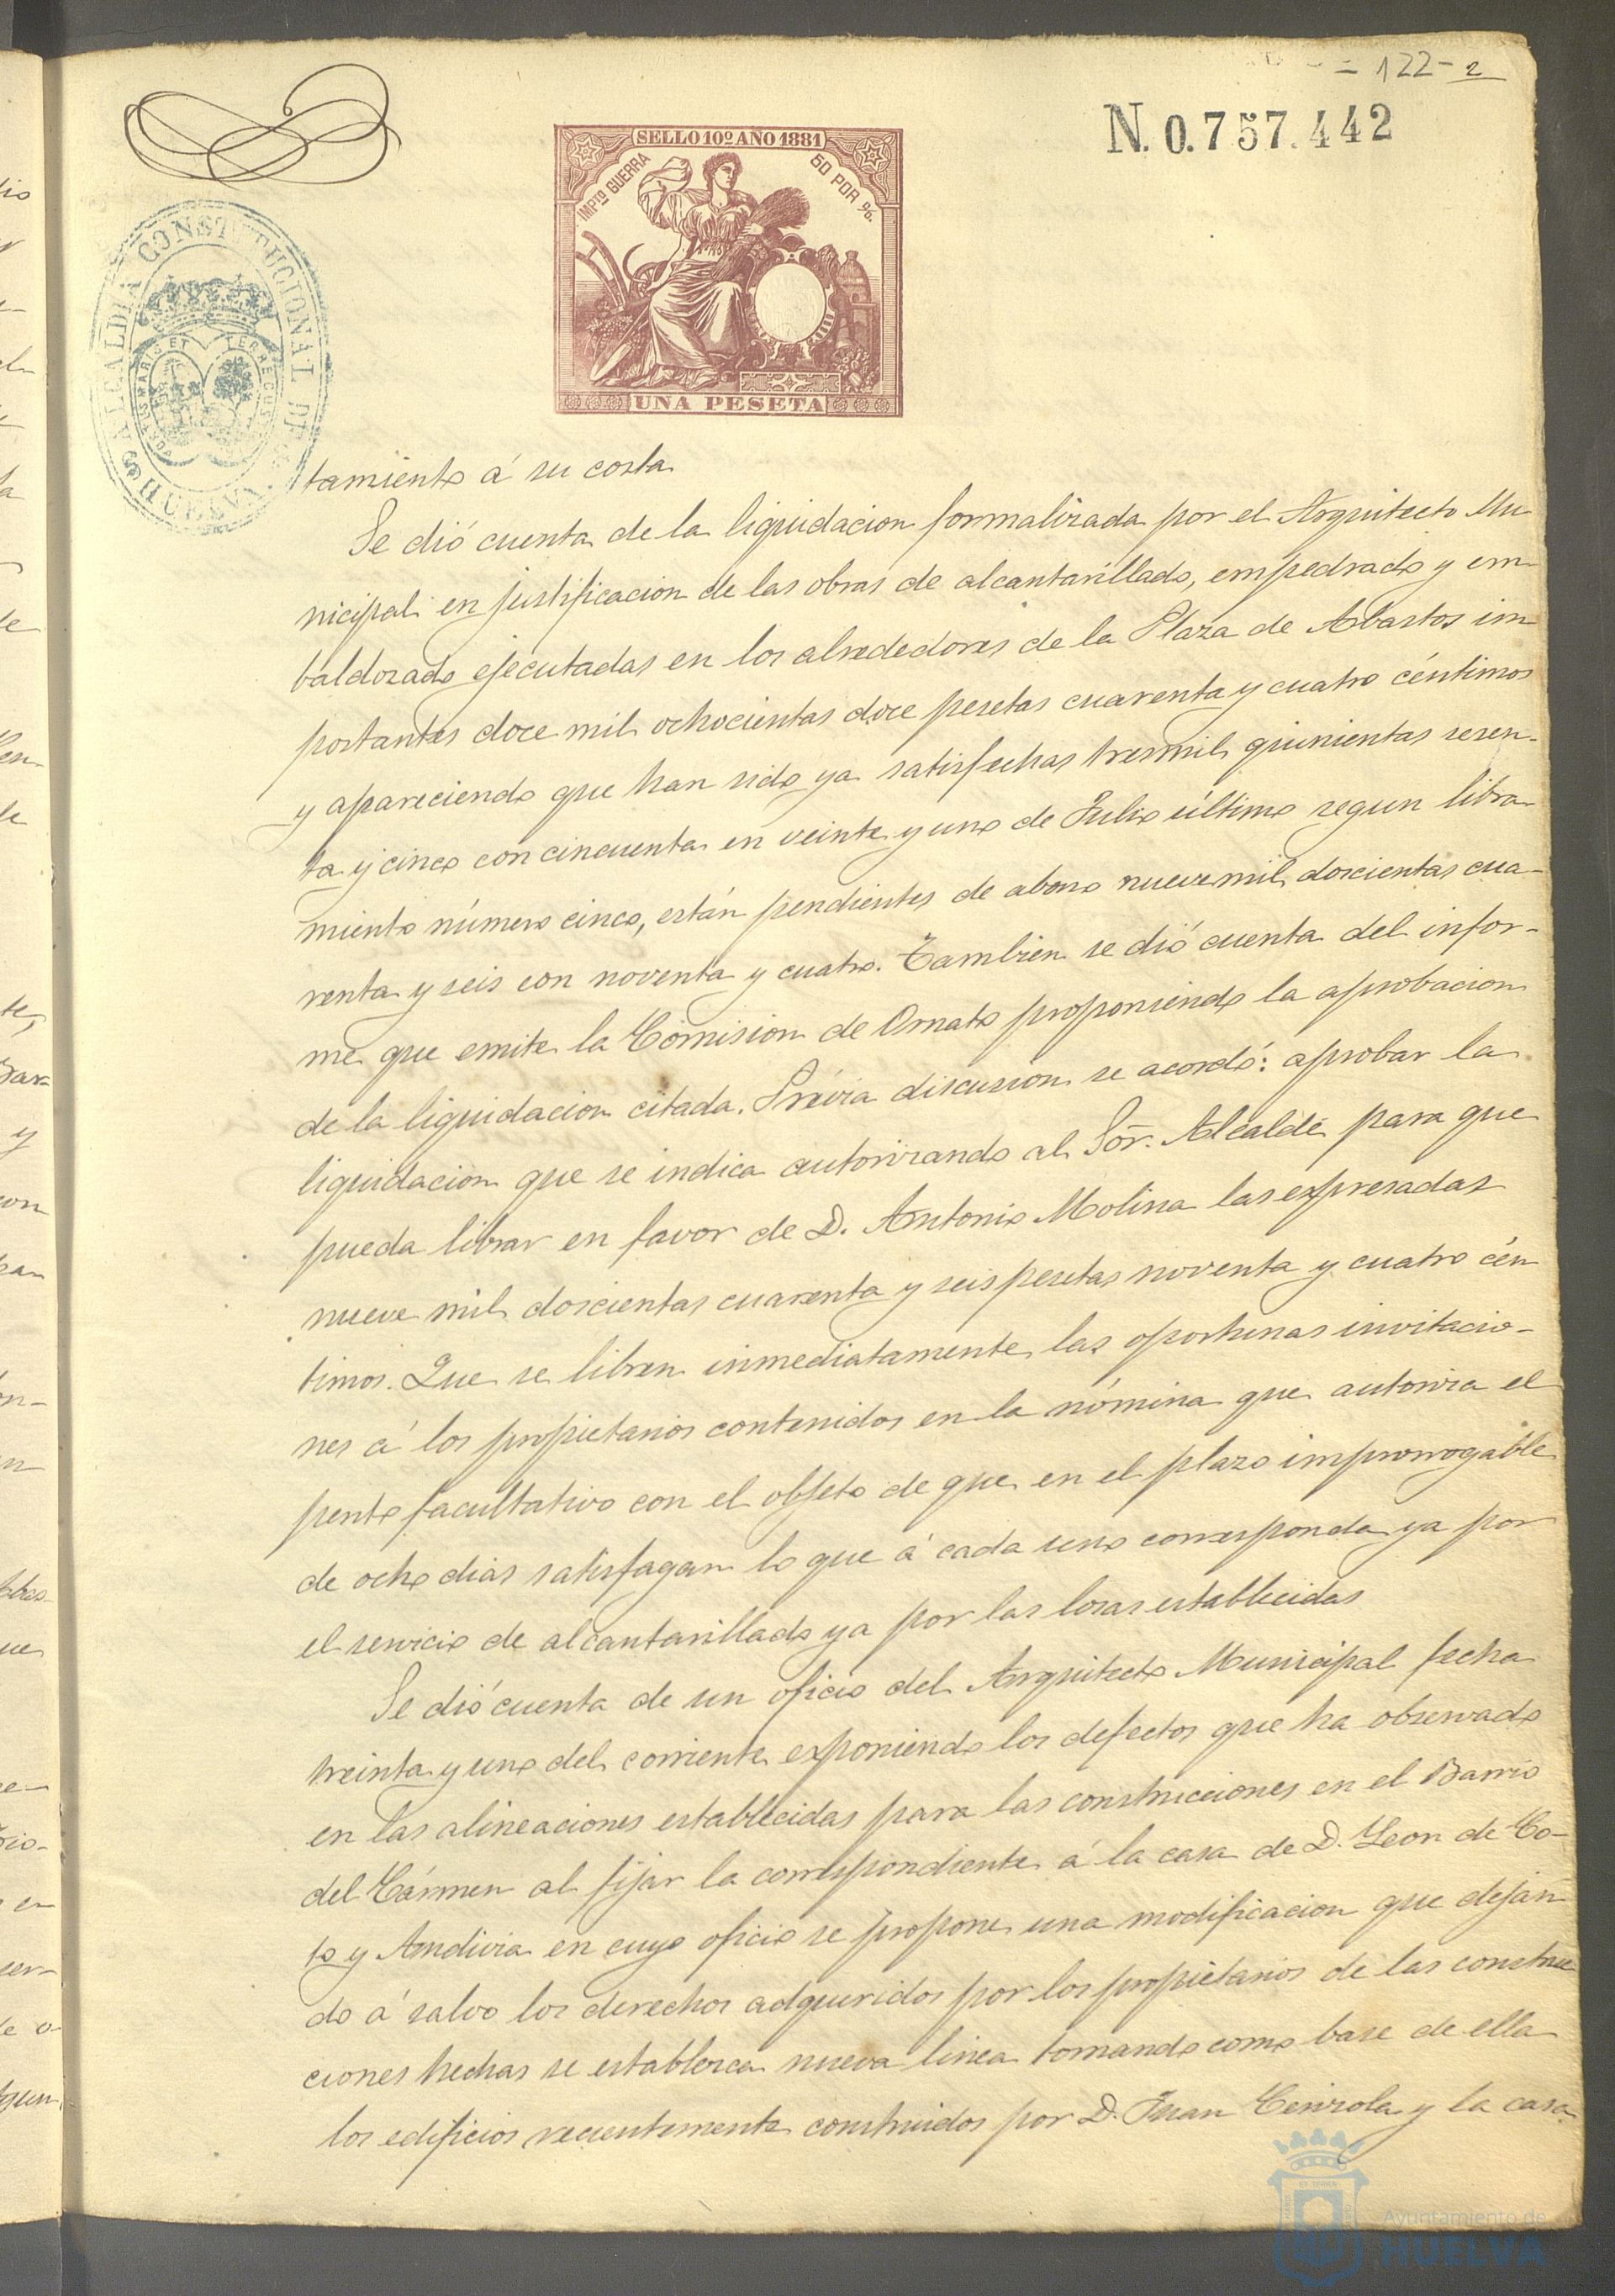 122-2
N. 0.757.442
SELLO 10º AÑO 1881
IMPTO GUERRA
50 POR %.
UNA PESETA
ALCALDIA CONSTITUCIONAL DE HUELVA
PORTUS MARIS ET TERRE CUSTODIA
tamiento á su costa
Se dió cuenta de la liquidacion formalizada por el Arquitecto Mu
nicipal en justificacion de las obras de alcantarillado, empedrado y em-
baldozado ejecutadas en los alrededores de la Plaza de Abastos im
portantes doce mil ochocientas doce pesetas cuarenta y cuatro céntimos
y apareciendo que han sido ya satisfechas tresmil quinientas sesen-
ta y cinco con cincuenta en veinte y uno de Julio último segun libra-
miento número cinco, están pendientes de abono nuevemil doscientas cua-
renta y seis con noventa y cuatro. Tambien se dió cuenta del infor-
me que emite la Comision de Ornato proponiendo la aprobacion
de la liquidacion citada. Prévia discusion se acordó: aprobar la
liquidacion que se indica autorizando al Sõr. Alcalde para que
pueda librar en favor de D. Antonio Molina las expresadas
nueve mil doscientas cuarenta y seis pesetas noventa y cuatro cén
timos. Que se libren inmediatamente las oportunas invitacio-
nes á los propietarios contenidos en la nómina que autoriza el
perito facultativo con el objeto de que en el plazo improrrogable
de ocho dias satisfagan lo que á cada uno corresponda ya por
el servicio de alcantarillado ya por las losas establecidas
Se dió cuenta de un oficio del Arquitecto Municipal fecha
treinta y uno del corriente exponiendo los defectos que ha observado
en las alineaciones establecidas para las construcciones en el Barrio
del Cármen al fijar la correspondiente á la casa de D. Leon de Co-
to y Andivia en cuyo oficio se propone una modificacion que dejan
do á salvo los derechos adqueridos por los propietarios de las constru
ciones hechas se establezca nueva linea tomando como base de ella
los edificios recientemente construidos por D. Juan Cenizola y la casa
Ayuntamiento de
HUELVA